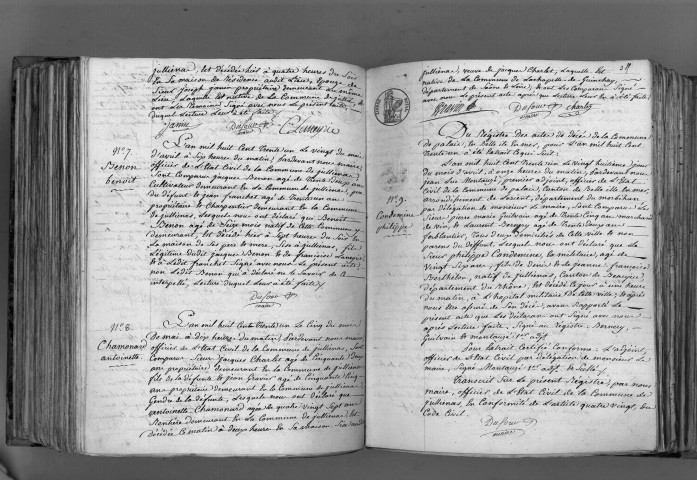 julliénas, est décédée hier à quatre heures du soir
en sa maison de résidence audit lieu, épouse de
Sieur Joseph janin propriétaire demeurant au même
Lieu, laquelle est native de la Commune de
ont les Comparans Signé avec nous le présent acte
duquel lecture leur a été faite.
Janin Dufour
maire
N° 7
Benon
benoit
L'an mil huit Cent Trente un le vingt du mois
d'avril à Sept heures du matin, pardevant nous maire
officier de l'Etat Civil de la Commune de julliénas,
Sont Comparus jacques Benon agé de Trente Sept ans
Cultivateur demeurant en la Commune de julliénas, père
du défunt & jean franchet agé de Trente un ans
propriétaire & Charpentier demeurant en la Commune
de julliénas, Lesquels nous ont déclaré que Benoît
Benon agé de Seize mois natif de cette Commune y
demeurant, est décédé hier à Sept heures du Soir en
la maison de ses père & mère, Sise à julliénas, fils
Légitime dudit jacques Benon & de françoise
& a Ledit franchet Signé avec nous Le présent acte
non Ledit Benon qui a déclaré ne le Savoir de ce
interpellé, lecture duquel leur a été faite.
Dufour
maire
N° 8
Chamonard
antoinette
L'an mil huit Cent Trente un le Cinq du mois
De mai à dix heures du matin, pardevant nous maire
officier de l'Etat Civil de la Commune de julliénas, Sont
Comparus Sieur Jacques Charlet agé de Cinquante
ans propriétaire demeurant en la Commune de julliénas
fils de la défunte, & jean Gravier agé de Cinquante Cinq
ans propriétaire demeurant en la Commune de julliénas
Gendre de la défunte, Lesquels nous ont déclaré que
antoinette Chamonard agée de quatre vingt Sept ans
Rentière demeurant en la Commune de julliénas, est
décédée Ce matin à deux heures en Sa maison Sise audit
julliénas, veuve de jacques Charlet, Laquelle est
native de la Commune de Lachapelle-de-Guinchay,
département de Saône & Loire, & ont les Comparans Signé
avec nous le présent acte après que lecture leur a été faite.
Dufour Charlet
maire
N° 9
Condemine
philippe
Du Registre des actes de décès de la Commune
de palais, en Belle ile en mer, pour l'an mil huit Cent
Trente un a été Extrait Ce qui suit,
L'an mil huit Cent Trente un, le vingt huitième jour
du mois d'avril, à onze heures du matin, pardevant nous
jean Mantauzé, premier adjoint, officier de l'Etat
Civil de la Commune de palais, Canton de Belle ile en mer,
arrondissement de Lorient, département du morbihan
par délégation de monsieur le maire, sont Comparus Les
Sieurs pierre marie Guilvain agé de Trente Cinq ans marchand
de vin, & Laurent Bernery agé de Trente ans
ferblantier, Tous deux domiciliés de cette Ville & non
parens du deffunt, Lesquels nous ont déclaré que le
Sieur philippe Condemine, agé de
Vingt Six ans, fils de & de jeanne françoise
Berthelon, natif de julliénas, Canton de Beaujeu,
département du Rhône, est décédé Ce jour à une heure
du matin, à L'hopital militaire de Cette ville, & après
nous être assuré de Son décès, avons Rapporté le
présent acte que Les déclarans ont Signé avec nous
après lecture faite, Signé au registre, Bernery,
Guilvain & mantauzé 1er adjt.
pour Extrait Certifié Conforme, L'adjoint,
officier de l'Etat Civil par délégation de monsieur le
maire, Signé Mantauzé 1er adjt. & Scellé.
Transcrit Sur le présent Registre, par nous
maire, officier de l'Etat Civil de la Commune de
julliénas, en Conformité de L'article quatre vingt, du
Code Civil.
Dufour
maire